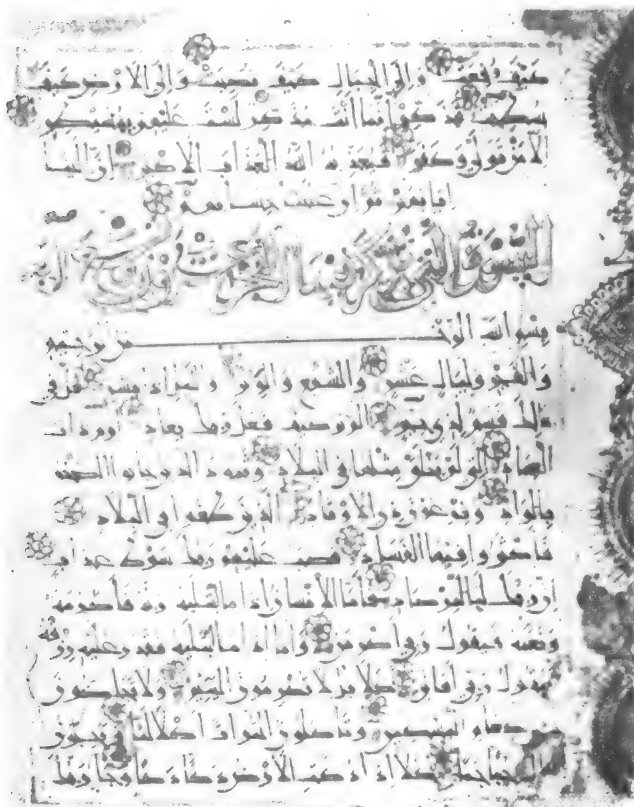 كيف رفعت وإلى الجبال كيف نصبت وإلى الأرض كيف
سطحت فذكر إنما أنت مذكر لست عليهم بمصيطر
إلا من تولى وكفر فيعذبه الله العذاب الأكبر إن إلينا
إيابهم ثم إن علينا حسابهم
التي يذكر فيها الفجر
بسم الله الرحمن الرحيم
والفجر وليال عشر والشفع والوتر والليل إذا يسر هل في
ذلك قسم لذي حجر ألم تر كيف فعل ربك بعاد إرم ذات
العماد التي لم يخلق مثلها في البلاد وثمود الذين جابوا الصخر
بالواد وفرعون ذي الأوتاد الذين طغوا في البلاد
فأكثروا فيها الفساد فصب عليهم ربك سوط عذاب
إن ربك لبالمرصاد فأما الإنسان إذا ما ابتليه ربه فأكرمه
ونعمه فيقول ربي أكرمن وأما إذا ما ابتليه فقدر عليه رزقه
فيقول ربي أهانن كلا بل لا تكرمون اليتيم ولا تحاضون
على طعام المسكين وتأكلون التراث أكلا لما وتحبون
المال حبا جما كلا إذا دكت الأرض دكا دكا وجاء ربك